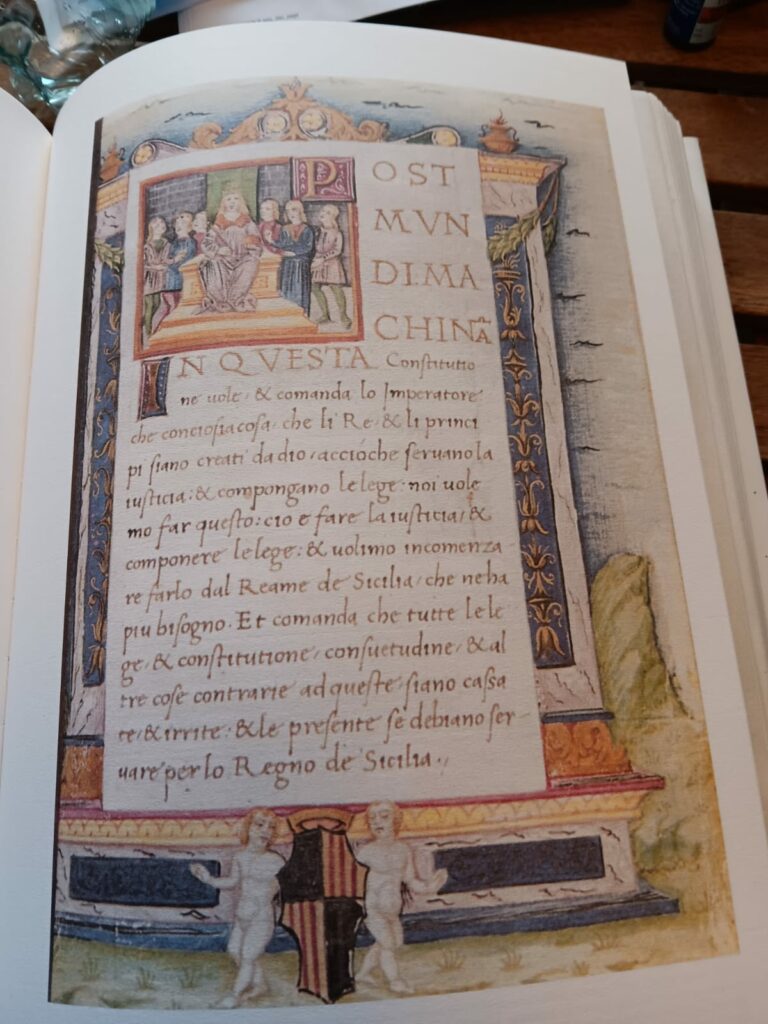 POST
MVN
DI.MA
CHINÃ
IN QVESTA Constitutio
ne uole, & comanda lo Imperatore
che conciosiacosa, che li Re, & li princi
pi siano creati da dio, acciòche seruano la
iusticia: & compongano le lege: noi uole
mo far questo: cio e fare la iusticia, &
componere le lege: & uolimo incomenza
re farlo dal Reame de Sicilia, che ne ha
piu bisogno. Et comanda che tutte le le
ge, & constitutione, consuetudine, & al
tre cose contrarie ad queste, siano cassa
te, & irrite: & le presente se debiano ser-
uare per lo Regno de Sicilia.